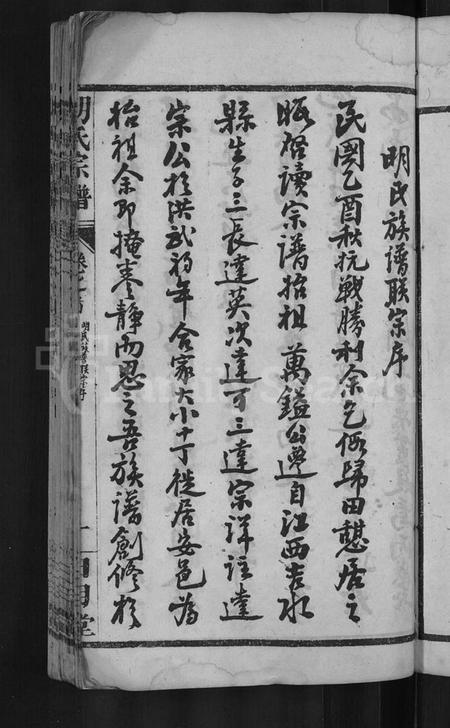 明氏族譜聯宗序
民國乙酉秋抗戰勝利余乞假歸田憩居之
暇啓讀宗譜始祖萬鎰公遷自江西吉水
縣生子三長達英次達可三達宗詳註達
宗公於洪武初年合家大小十丁徙居安邑為
始祖余即掩卷靜而思之吾族譜創修於
明氏宗譜
卷之首
明氏族譜聯宗序
一
堂
FamilySearch